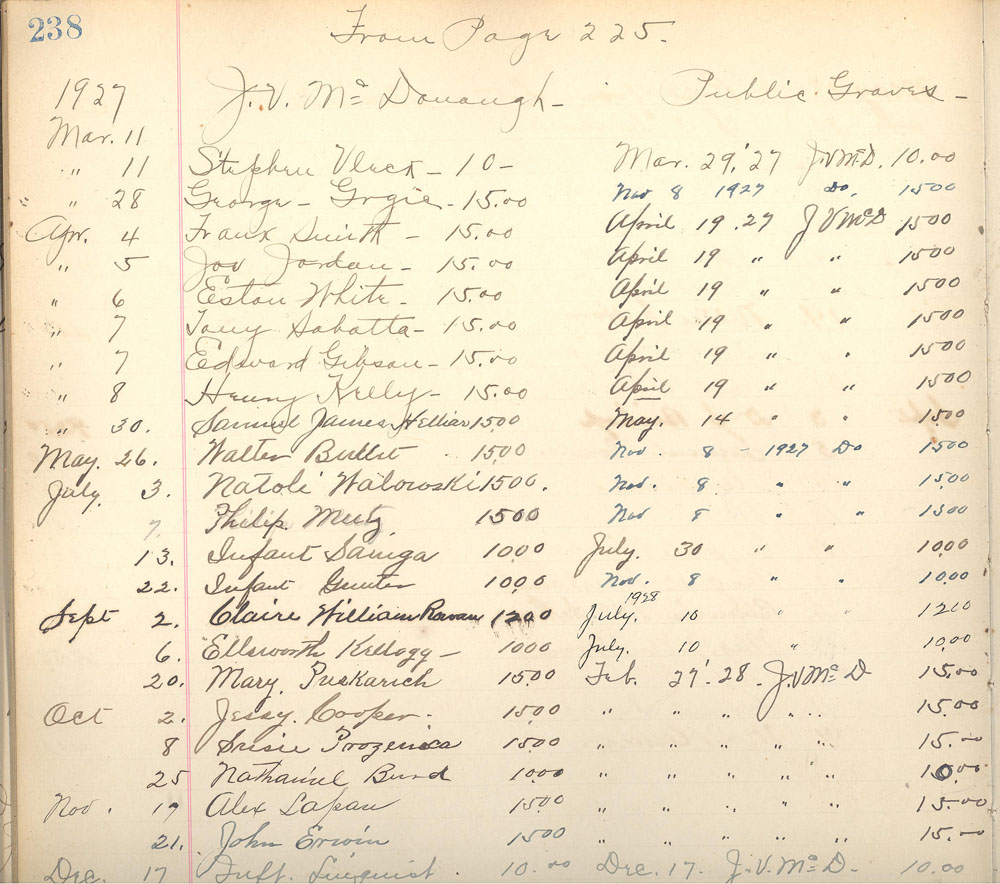 238 From Page 225.
1927 J. V. Mc Donough - Public Graves -
Mar. 11
" 11 Stephen Vleck - 10 - Mar. 29,'27 J.V.McD. 10.00
" 28 George - Grgic - 15.00 Nov 8 1927 Do. 1500
Apr. 4 Frank Smith - 15.00 April 19 .27 J V McD 1500
" 5 Jov Jordan - 15.00 April 19 " " 1500
" 6 Eston White - 15.00 April 19 " " 1500
" 7 Tony Sabatta - 15.00 April 19 " " 1500
" 7 Edward Gibson - 15.00 April 19 " " 1500
" 8 Henry Kelly - 15.00 April 19 " " 1500
" 30. Samuel James Helliar 1500 May. 14 " " 1500
May. 26. Walter Bullet . 1500 Nov. 8 - 1927 Do 1500
July 3. Natoli Walowski 1500. Nov. 8 " " 1500
7. Philip Meetz 1500 Nov 8 " " 1500
13. Infant Saniga 1000 July. 30 " " 1000
22. Infant Gunter 1000 Nov. 8 " " 1000
Sept 2. Claire William Rowan 1200 July. 1928 10 " " 1200
6. Ellsworth Kellogg - 1000 July. 10 " 1000
20. Mary. Puskarich 1500 Feb. 27'.28. J.V Mc D 15.00
Oct 2. Jessy. Cooper. 1500 " " " " " 15.00
8 Susie 1500 " " " " " 15.00
25 Nathaniel Burd 1000 " " " " " 10.00
Nov. 19 Alex Lapan 1500 " " " " " 15.00
21. John Erwin 1500 " " " " " 15.00
Dec. 17 Inft. Linquist. 10.00 Dec. 17. J.V.McD. 10.00